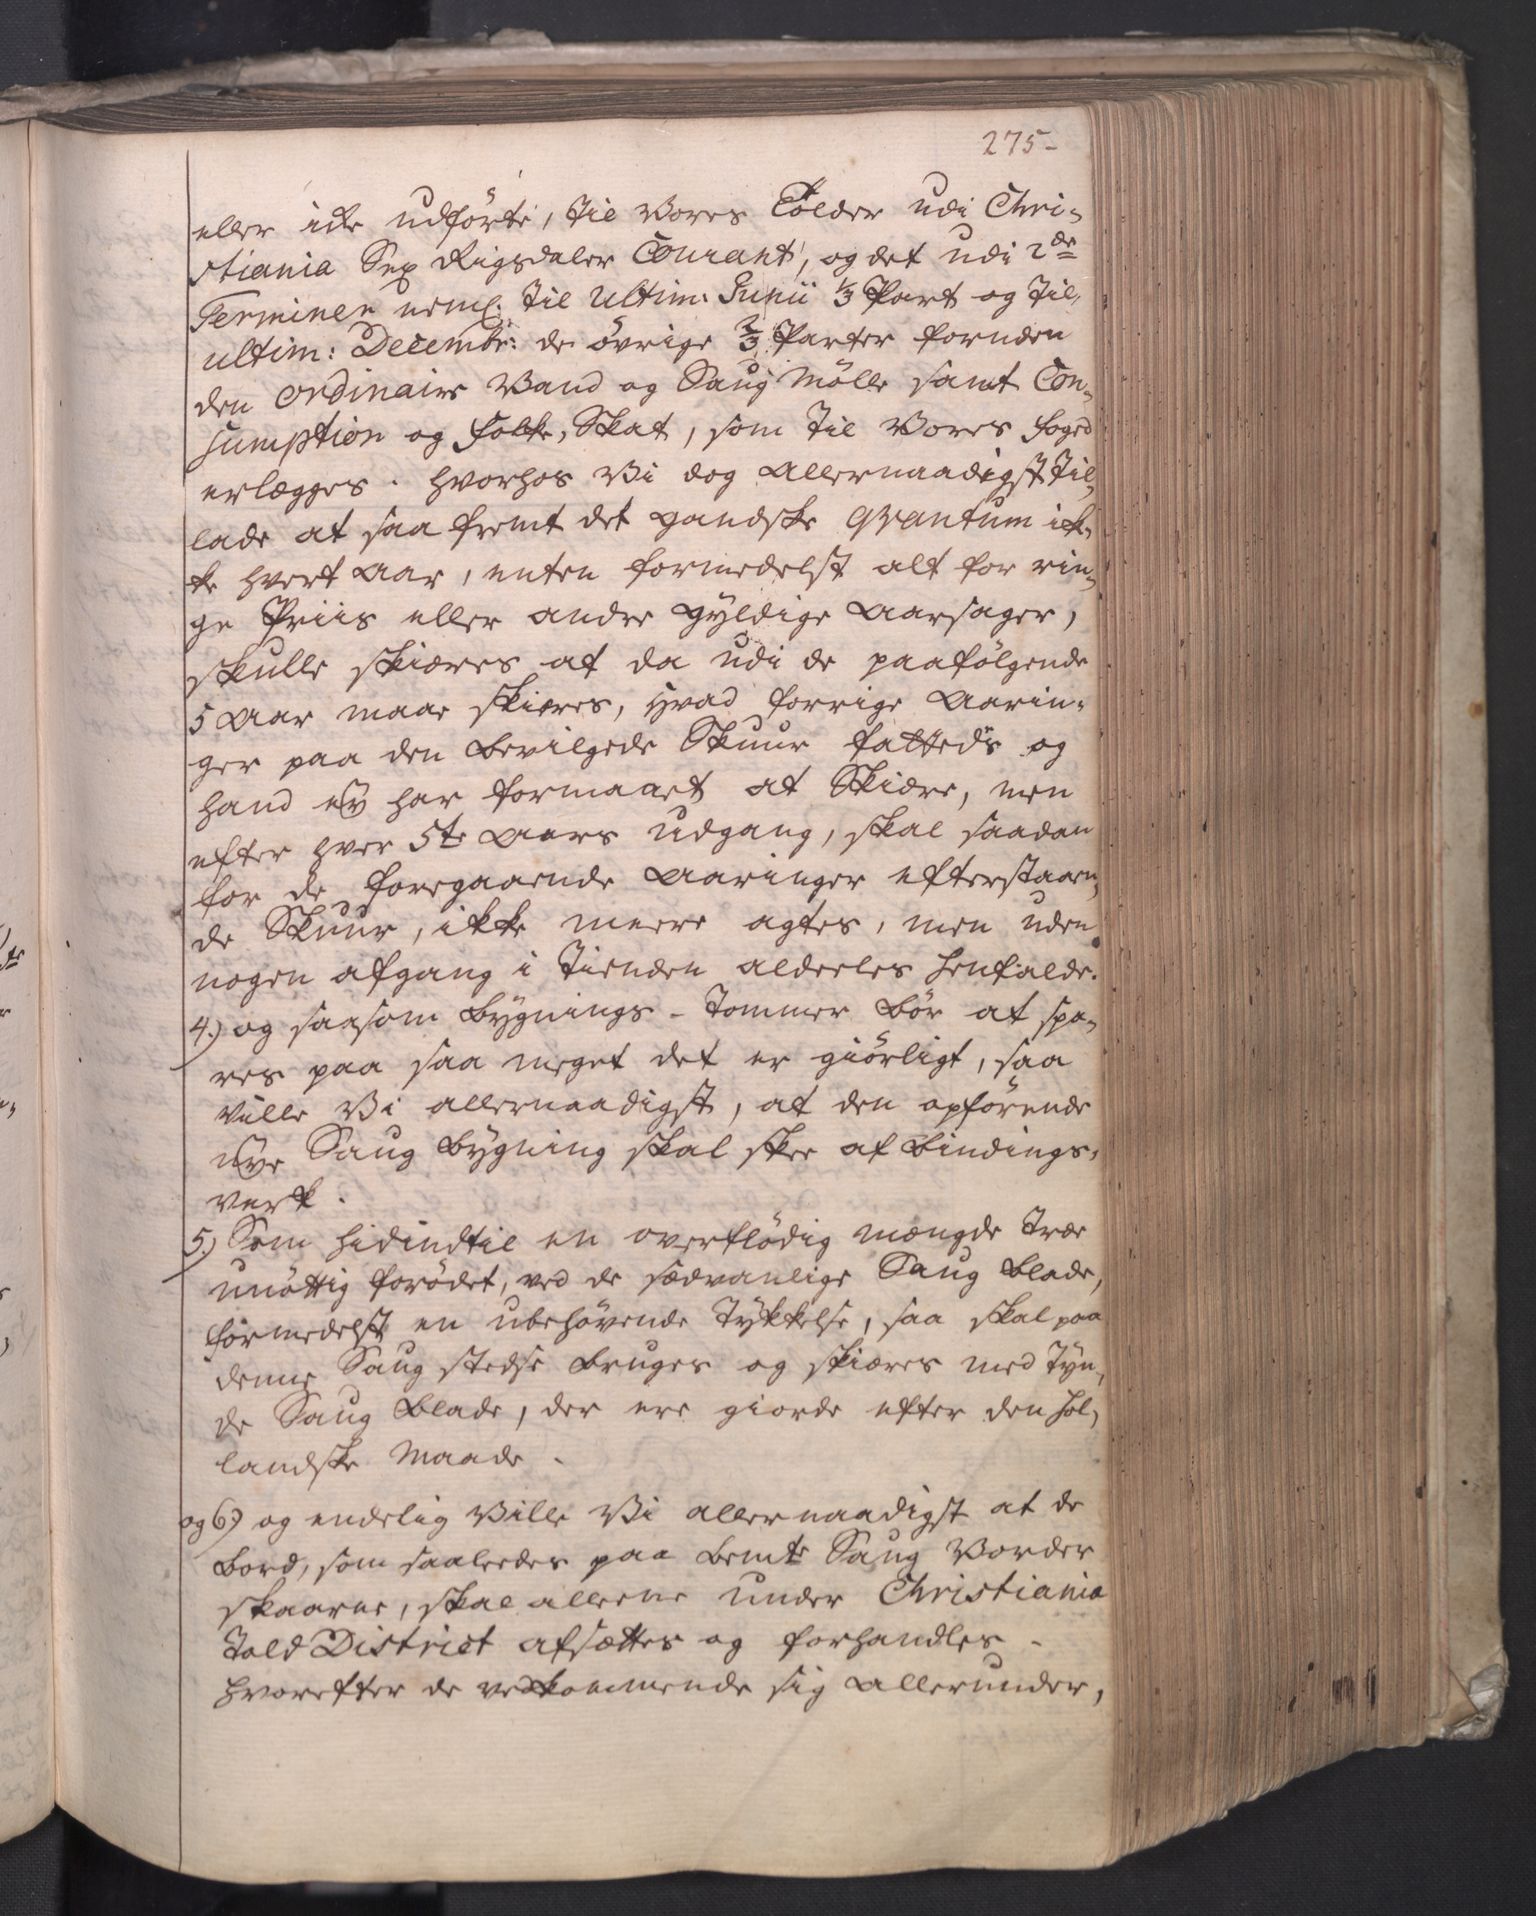 275-
eller icke udförte, til Vores Tolder udi Chri-
stiania Sex Rigsdaler Courant, og det udi 2de
Terminer neml. til Ultim: Junii 1/3 Part og til
ultim: Decembr: de övrige 2/3 Parter foruden
den ordinaire Vand og Saug Mölle samt Con-
sumption og Folke-Skat, som til Vores Foged
erlægges. hvorhos Vi dog allernaadigst til-
lade at saa fremt det gandske qvantum ik-
ke hvert aar, enten formedelst alt for rin-
ge Priis eller andre gyldige aarsager,
skulle skiæres at da udi de paafölgende
5 aar maae skieres, hvad forrige aarin-
ger paa den bevilgede Skuur fattedes og
hand ey har formaaet at Skiære, men
efter hver 5te aars udgang, skal saadan
for de foregaaende aaringer efterstaaen-
de Skuur, ikke meere agtes, men uden
nogen afgang i Tienden alderles henfalde.
4.) og saasom bygnings-Tommer bör at spa-
res paa saa meget det er giörligt, saa
ville Vi allernaadigst, at den opförende
nye Saug bygning skal skee af bindings-
verk.
5.) Som hidindtil en overflödig mængde Træe
unöttig forödet, ved de sædvanlige Saug blade,
formedelst en ubehövende Tykkelse, saa skal paa
denne Saug stedse bruges og skiæres med tyn-
de Saug blade, der ere giorde efter den hol-
landske Maade.
og 6.) og endelig Ville Vi allernaadigst at de
bord, som saaledes paa bemte Saug Vorder
skaarne, skal alleene under Christiania
Told District afsættes og forhandles-
hvorefter de vedkommende sig allerunder-